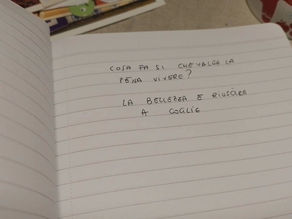 COSA FA SI CHE VALGA LA
PENA VIVERE?
LA BELLEZZA E RIUSCIRE
A COGLIE